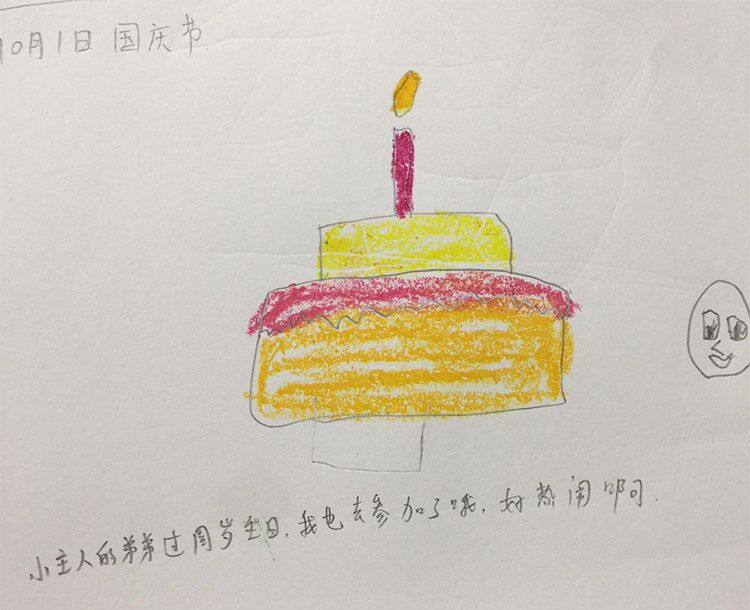 10月1日 国庆节
小主人的弟弟过周岁生日，我也去参加了哦，好热闹啊.